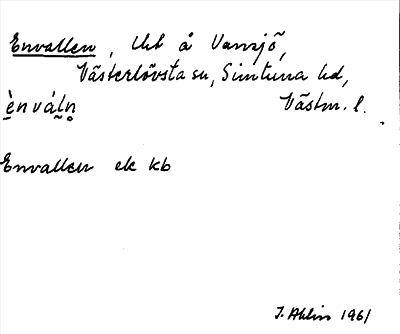 Envallen, lht å Vansjö,
Västerlövsta sn, Simtuna hd,
ènváln̥ Västm. l.
Envallen ek kb
J. Ahlin 1961